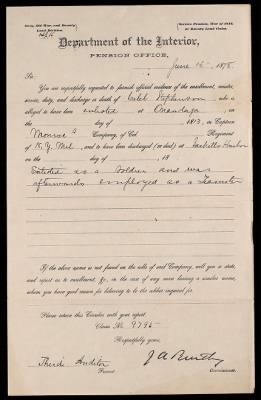 Old War, and Bounty
Land Division.
Service Pension, War of 1812,
or Bounty Land Claim.
Department of the Interior,
PENSION OFFICE,
June 15, 1878.
Sir:
You are respectfully requested to furnish official evidence of the enrollment, muster,
service, duty, and discharge or death of Caleb Stephenson, who is
alleged to have been enlisted at Onondaga
on the day of 1813, in Captain
Monroe's Company, of Col Regiment
of N.Y. Mil., and to have been discharged (or died) at Sacketts Harbor
on the day of , 18
Enlisted as a Soldier and was
afterwards employed as a Teamster
If the above name is not found on the rolls of said Company, will you so state,
and report as to enrollment, &c., in the case of any man bearing a similar name,
whom you have good reason for believing to be the soldier inquired for.
Please return this Circular with your report.
Claim No. 9795
Respectfully yours,
Third Auditor
J A Bentley
Present Commissioner.